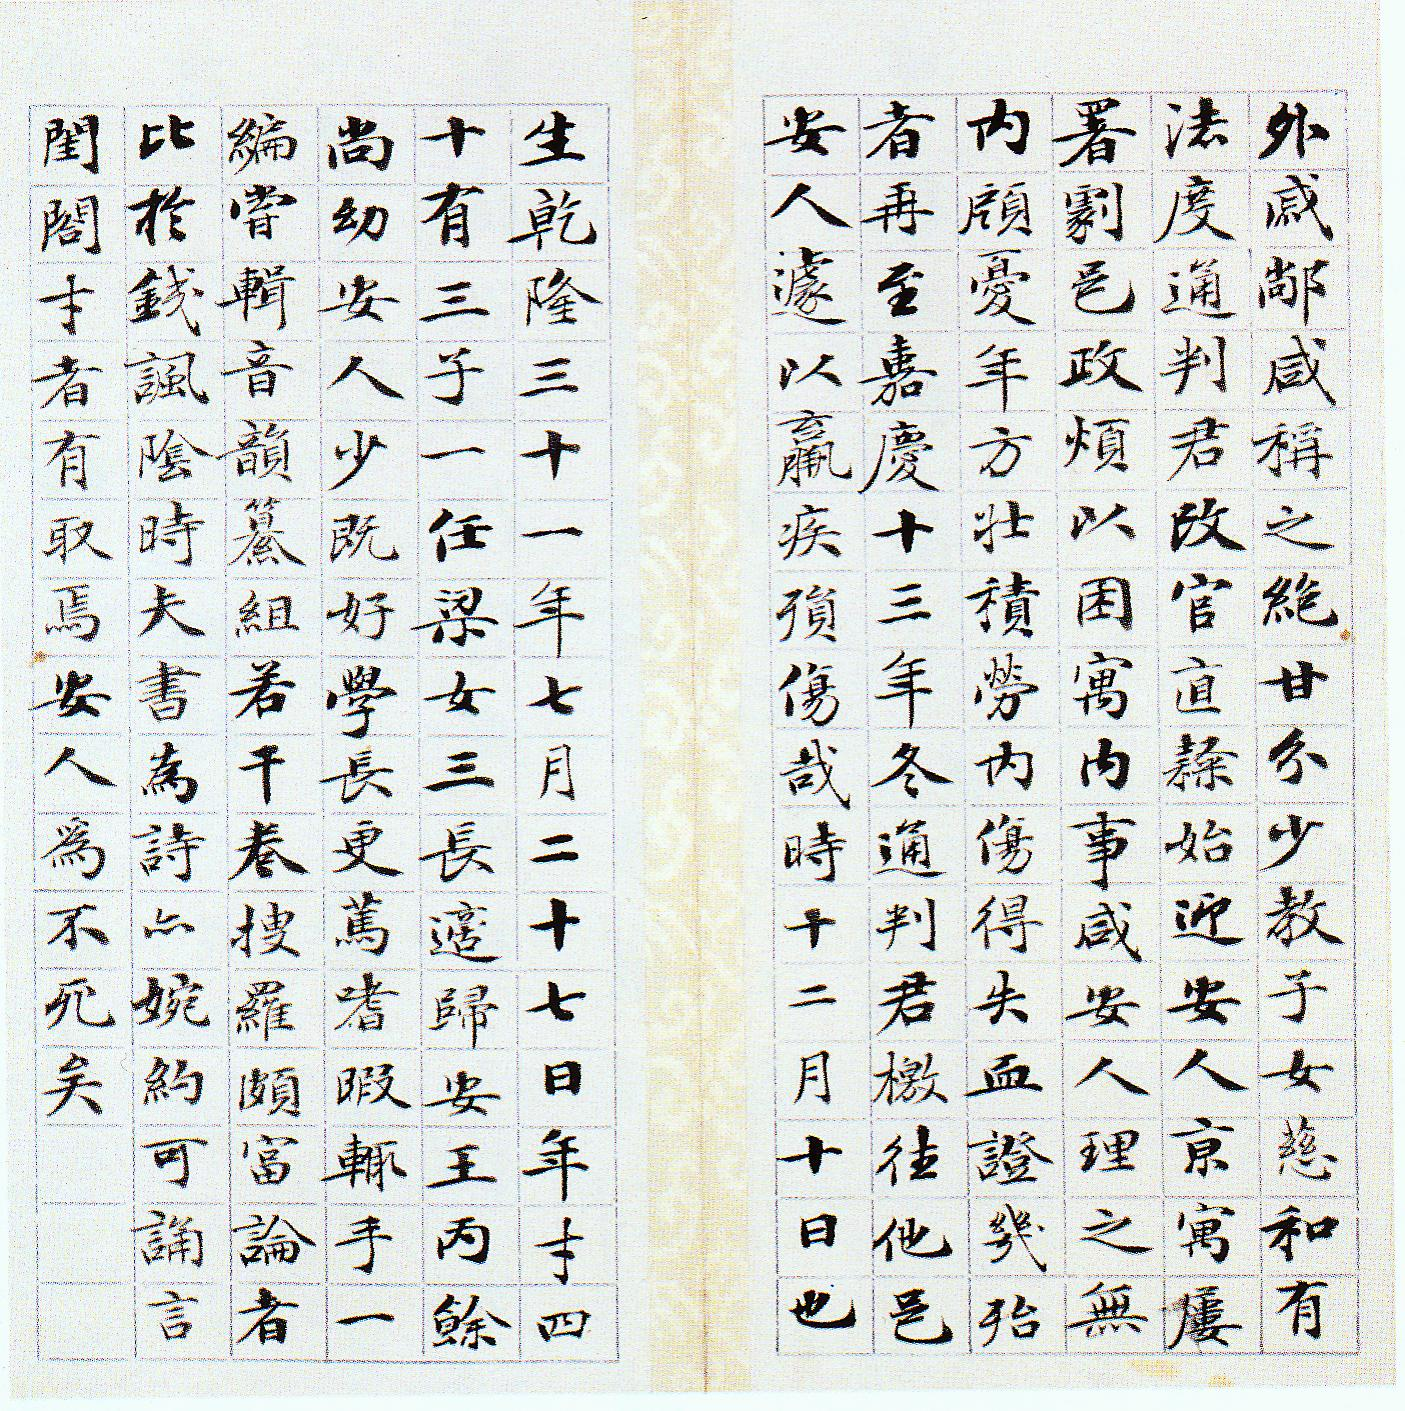 外戚鄰咸稱之絶甘分少教子女慈和有
法度通判君改官直隸始迎安人京寓屢
署劇邑政煩以困寓內事咸安人理之無
內顧憂年方壯積勞內傷得失血證幾殆
者再至嘉慶十三年冬通判君檄往他邑
安人遽以羸疾殞傷哉時十二月十日也
生乾隆三十一年七月二十七日年才四
十有三子一任梁女三長適歸安王丙餘
尚幼安人少既好學長更篤嗜暇輒手一
編嘗輯音韻纂組若干卷搜羅頗富論者
比於錢諷陰時夫書為詩亦婉約可誦言
閨閣才者有取焉安人爲不死矣